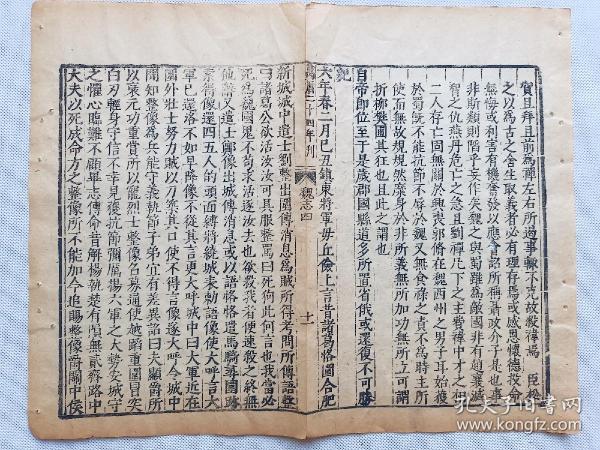 賀且拜且前為禪左右所遏事輒不克故殺禕焉　臣松
之以為古之舍生取義者必有理存焉或感恩懷德投命
無悔或利害有機奮發以應會詔所稱聶政介子是也事
非斯類則陷乎妄作矣魏之與蜀雖為敵國非有趙襄滅
智之仇燕丹危亡之急且劉禪凡下之主費禕中才之相
二人存亡固無關於興喪郭脩在魏西州之男子耳始獲
於蜀既不能抗節不辱於魏又無食祿之責不為時主所
使而無故規規然糜身於非所義無所加功無所立可謂
折柳樊圃其狂也且此之謂也
自帝即位至于是歲郡國縣道多所置省俄或還復不可勝
紀
六年春二月己丑鎮東將軍毌丘儉上言昔諸葛恪圍合肥
萬曆二十四年刊
魏志四
十一
新城城中遣士劉整出圍傳消息為賊所得考問所傳語整
曰諸葛公欲活汝汝可具服整罵曰死狗此何言也我當必
死為魏國鬼不苟求活逐汝去也欲殺我者便速殺之終無
他辭又遣士鄭像出城傳消息或以語恪恪遣馬騎尋圍跡
索得像還四五人的頭面縛將繞城表敕語像使大呼言大
軍已還洛不如早降像不從其言更大呼城中曰大軍近在
圍外壯士努力賊以刀築其口使不得言像遂大呼令城中
聞知整像為兵能守義執節子弟宜有差異詔曰夫顯爵所
以褒元功重賞所以寵烈士整像召募通使越蹈重圍冒突
白刃輕身守信不幸見獲抗節彌厲揚六軍之大勢安城守
之懼心臨難不顧畢志傳命昔解楊執楚有隕無貳齊路中
大夫以死成命方之整像所不能加今追賜整像爵關中侯
孔夫子旧书网
www.kongfz.com